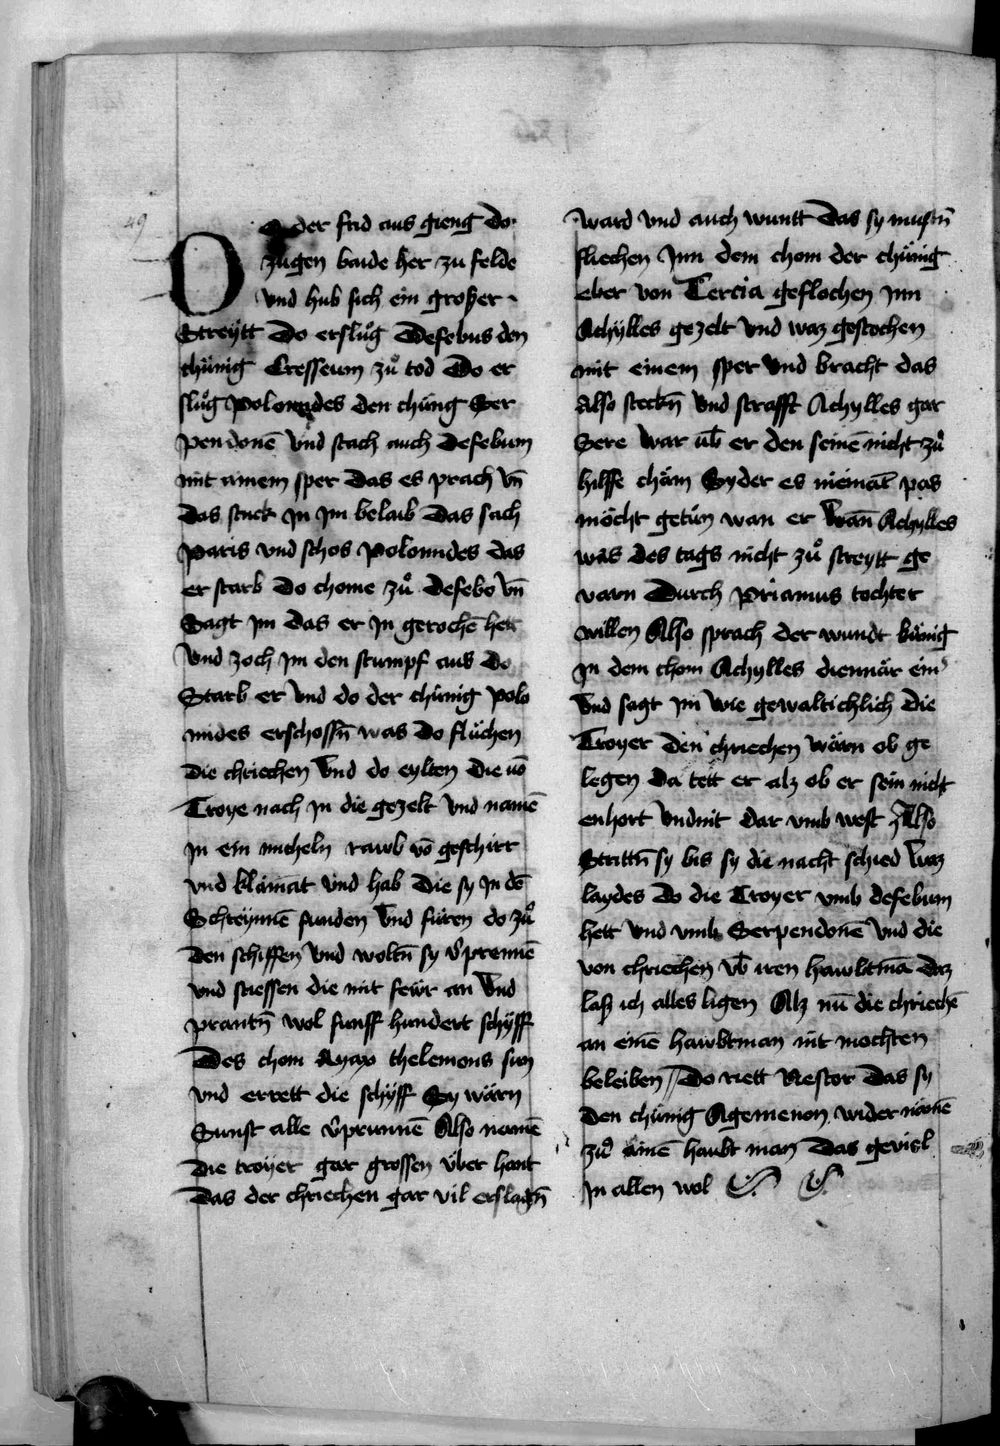 49
Do der frid aus gieng do
zugen baide her zu felde
vnd hub sich ein grosser
Streÿtt Do erslůg Defebus den
chünig Cresseum zů tod Do er
slůg polomides den chüng Ser
pendonē vnd stach auch Defebum
mit ainem sper das es prach vn̄
das stuck jn jm belaib Das sach
paris vnd schos polomides das
er starb Do chome zů defebo vn̄
Sagt jm das er jn gerochē hett
vnd zoch jm den stumpf aus do
Starb er vnd do der chünig polo
mides erschossn̄ was do flüchen
die chriechen vnd do eylten die vō
Troye nach jn die gezelt vnd namē
jn ein micheln rawb vō geschirr
vnd klainat vnd hab die sy jn dē
Schreÿnnē funden vnd füren do zů
den schiffen vnd woltn̄ sy v̄prennē
vnd stiessen die mit fewr an vnd
prantn̄ wol funff hundert schÿff
Des chom Ayax thelemons sun
vnd errett die schÿff Sy wärn
Sunst alle v̄prunnē Also namē
die troyer gar grossen über hant
das der chriechen gar vil erslagn̄
ward vnd auch wuntt das sy mustn̄
fliechen jnn dem chom der chünig
eber von Tercia geflochen jnn
Achÿlles gezelt vnd waz gestochen
mit einem sper vnd bracht das
also steckn̄ vnd strafft Achylles gar
Sere war vb̄ er den seinē nicht zů
hilffe chäm Syder es niemāt pas
möcht getün wan er wān Achylles
was des tags nicht zů streytt ge
varn Durch priamus tochter
willen Also sprach der wundt künig
jn dem chom Achylles diennär ein̄
vnd sagt jm wie gewaltichlich die
Troyer den chriechen wärn ob ge
legen da tett er alz ob er sein nicht
enhort vndnit dar vmb west Also
Strittn̄ sy bis sy die nacht schied waz
laydes do die Troyer vmb defebum
hett vnd vmb Serpendonē vnd die
von chriechen vb̄ iren hawbtmā daz
lasz ich alles ligen Alz nū die chriechē
an einē hawbtman nit mochten
beleiben // Do riett Nestor das sy
den chünig Agemenon wider namē
zů ainē haubt man das geviel
jn allen wol